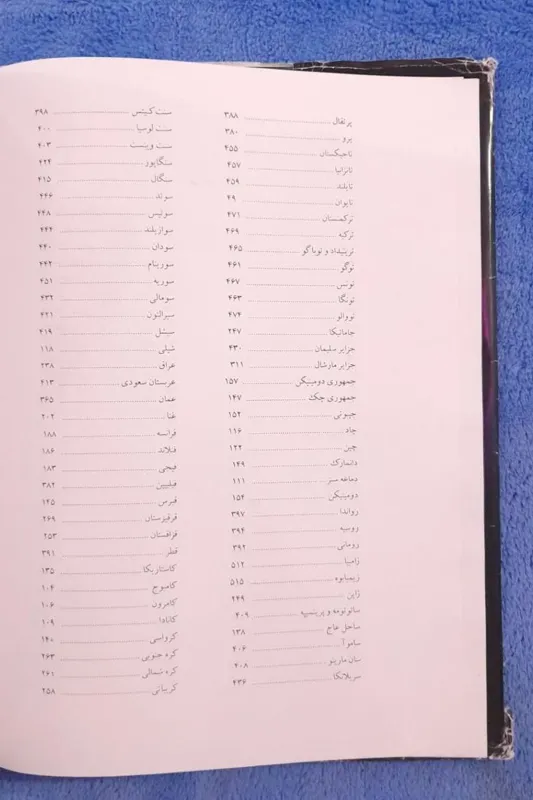 پرتغال ۳۸۸
پرو ۳۸۰
تاجیکستان ۴۵۵
تانزانیا ۴۵۷
تایلند ۴۵۹
تایوان ۴۹
ترکمنستان ۴۷۱
ترکیه ۴۶۹
ترینیداد و توباگو ۴۶۵
توگو ۴۶۱
تونس ۴۶۷
تونگا ۴۶۳
تووالو ۴۷۴
جامائیکا ۲۴۷
جزایر سلیمان ۴۳۰
جزایر مارشال ۳۱۱
جمهوری دومینیکن ۱۵۷
جمهوری چک ۱۴۷
جیبوتی ۱۵۲
چاد ۱۱۶
چین ۱۲۲
دانمارک ۱۴۹
دماغه سبز ۱۱۱
دومینیکن ۱۵۴
رواندا ۳۹۷
روسیه ۳۹۴
رومانی ۳۹۲
زامبیا ۵۱۲
زیمبابوه ۵۱۵
ژاپن ۲۴۹
سائوتومه و پرینسیپه ۴۰۹
ساحل عاج ۱۳۸
ساموآ ۴۰۶
سان مارینو ۴۰۸
سریلانکا ۴۳۶
سنت کیتس ۳۹۸
سنت لوسیا ۴۰۰
سنت وینسنت ۴۰۳
سنگاپور ۴۲۴
سنگال ۴۱۵
سوئد ۴۴۶
سوئیس ۴۴۸
سوازیلند ۴۴۴
سودان ۴۴۰
سورینام ۴۴۲
سوریه ۴۵۱
سومالی ۴۳۲
سیرالئون ۴۲۱
سیشل ۴۱۹
شیلی ۱۱۸
عراق ۲۳۸
عربستان سعودی ۴۱۳
عمان ۳۶۵
غنا ۲۰۲
فرانسه ۱۸۸
فنلاند ۱۸۶
فیجی ۱۸۳
فیلیپین ۳۸۲
قبرس ۱۴۵
قرقیزستان ۲۶۹
قزاقستان ۲۵۳
قطر ۳۹۱
کاستاریکا ۱۳۵
کامبوج ۱۰۴
کامرون ۱۰۶
کانادا ۱۰۹
کرواسی ۱۴۰
کره جنوبی ۲۶۳
کره شمالی ۲۶۱
کریباتی ۲۵۸